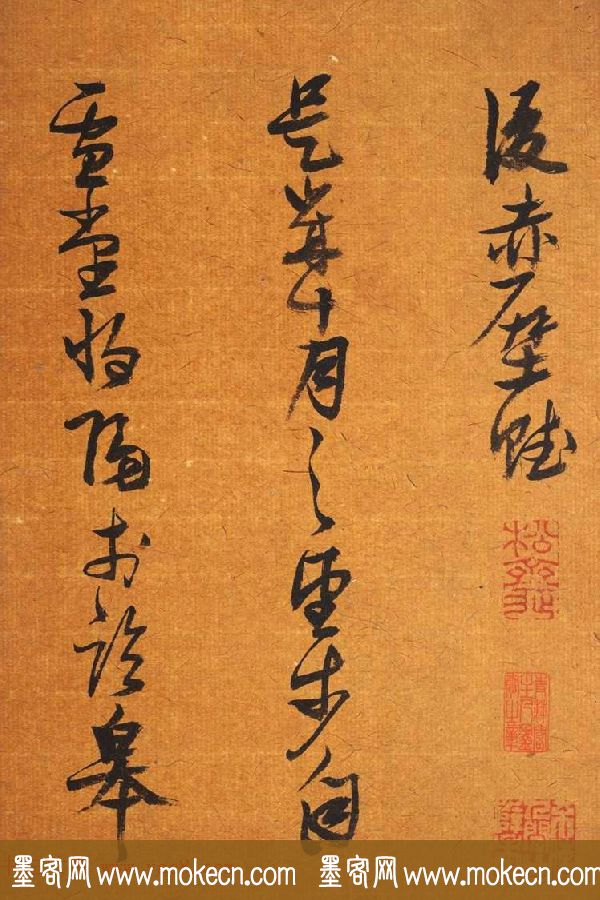 後赤壁賦
是歲十月之望步自
雪堂將歸於臨皋
墨客网 www.mokecn.com 墨客网 www.mokecn.com